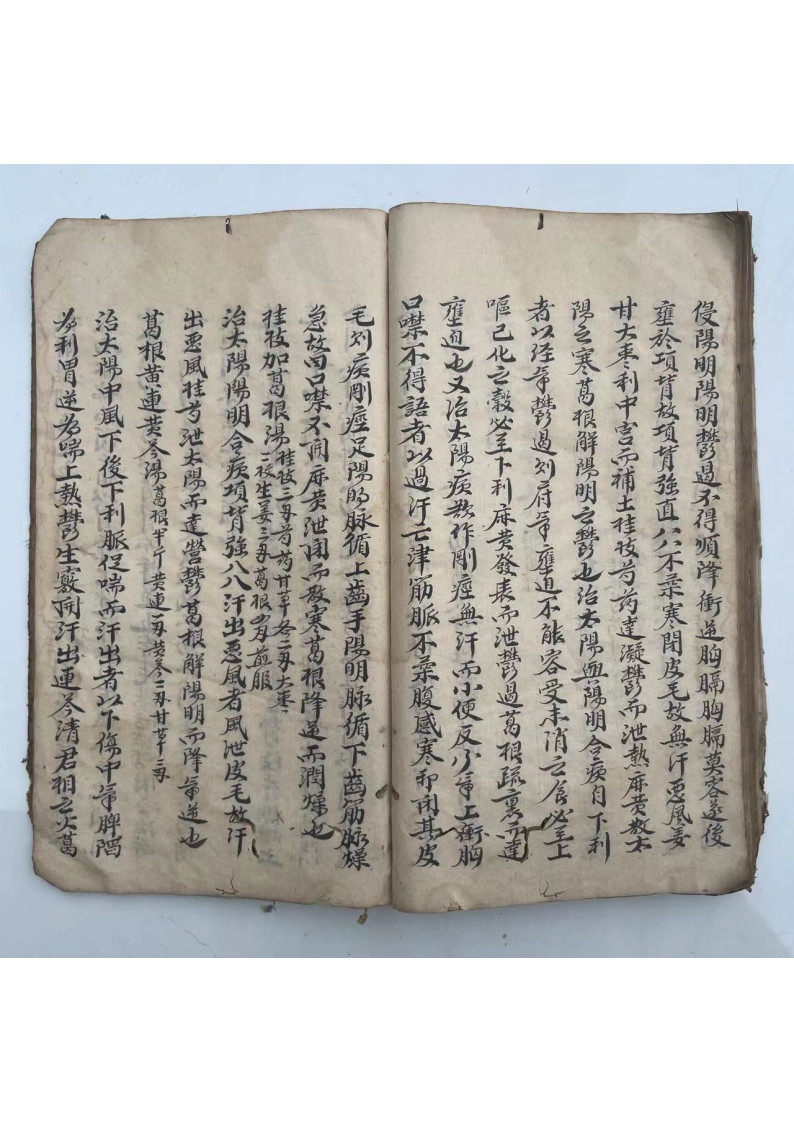 侵陽明陽明鬱遏不得順降衝逆胸膈胸膈莫容遂後
壅於項背故項背強直几几不柔寒閉皮毛故無汗惡風姜
甘大枣利中宫而補土桂枝芍药達凝鬱而泄熱麻黄散太
陽之寒葛根解陽明之鬱也治太陽與陽明合病自下利
者以经氣鬱遏刘府氣壅迫不能容受未消之食必至上
嘔已化之穀必至下利麻黄發表而泄鬱遏葛根疏裏而達
壅迫也又治太陽病欲作剛痙無汗而小便反少氣上衝胸
口噤不得語者以過汗亡津筋脈不柔復感寒邪閉其皮
毛刘病剛痙足陽明脉循上齒手陽明脉循下齒筋脉燥
急故口噤不開麻黄泄閉而散寒葛根降逆而潤燥也
桂枝加葛根湯桂枝三両芍药甘草各二両大枣十二枚生姜三両葛根四両煎服
治太陽陽明合病項背強几几汗出惡風者風泄皮毛故汗
出惡風桂芍泄太陽而達營鬱葛根解陽明而降氣逆也
葛根黄連黄芩湯葛根半斤黄連一両黄芩二両甘草二両
治太陽中風下後下利脈促喘而汗出者以下傷中氣脾陷
為利胃逆為喘上熱鬱生竅開汗出連芩清君相之火葛